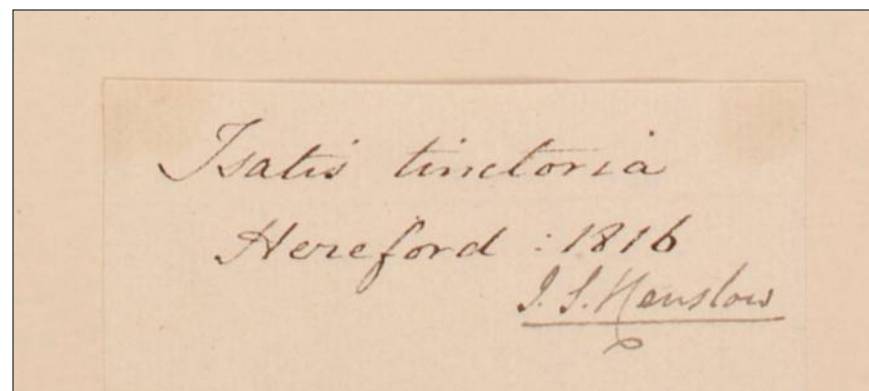 Isatis tinctoria
Hereford : 1816
J. S. Henslow